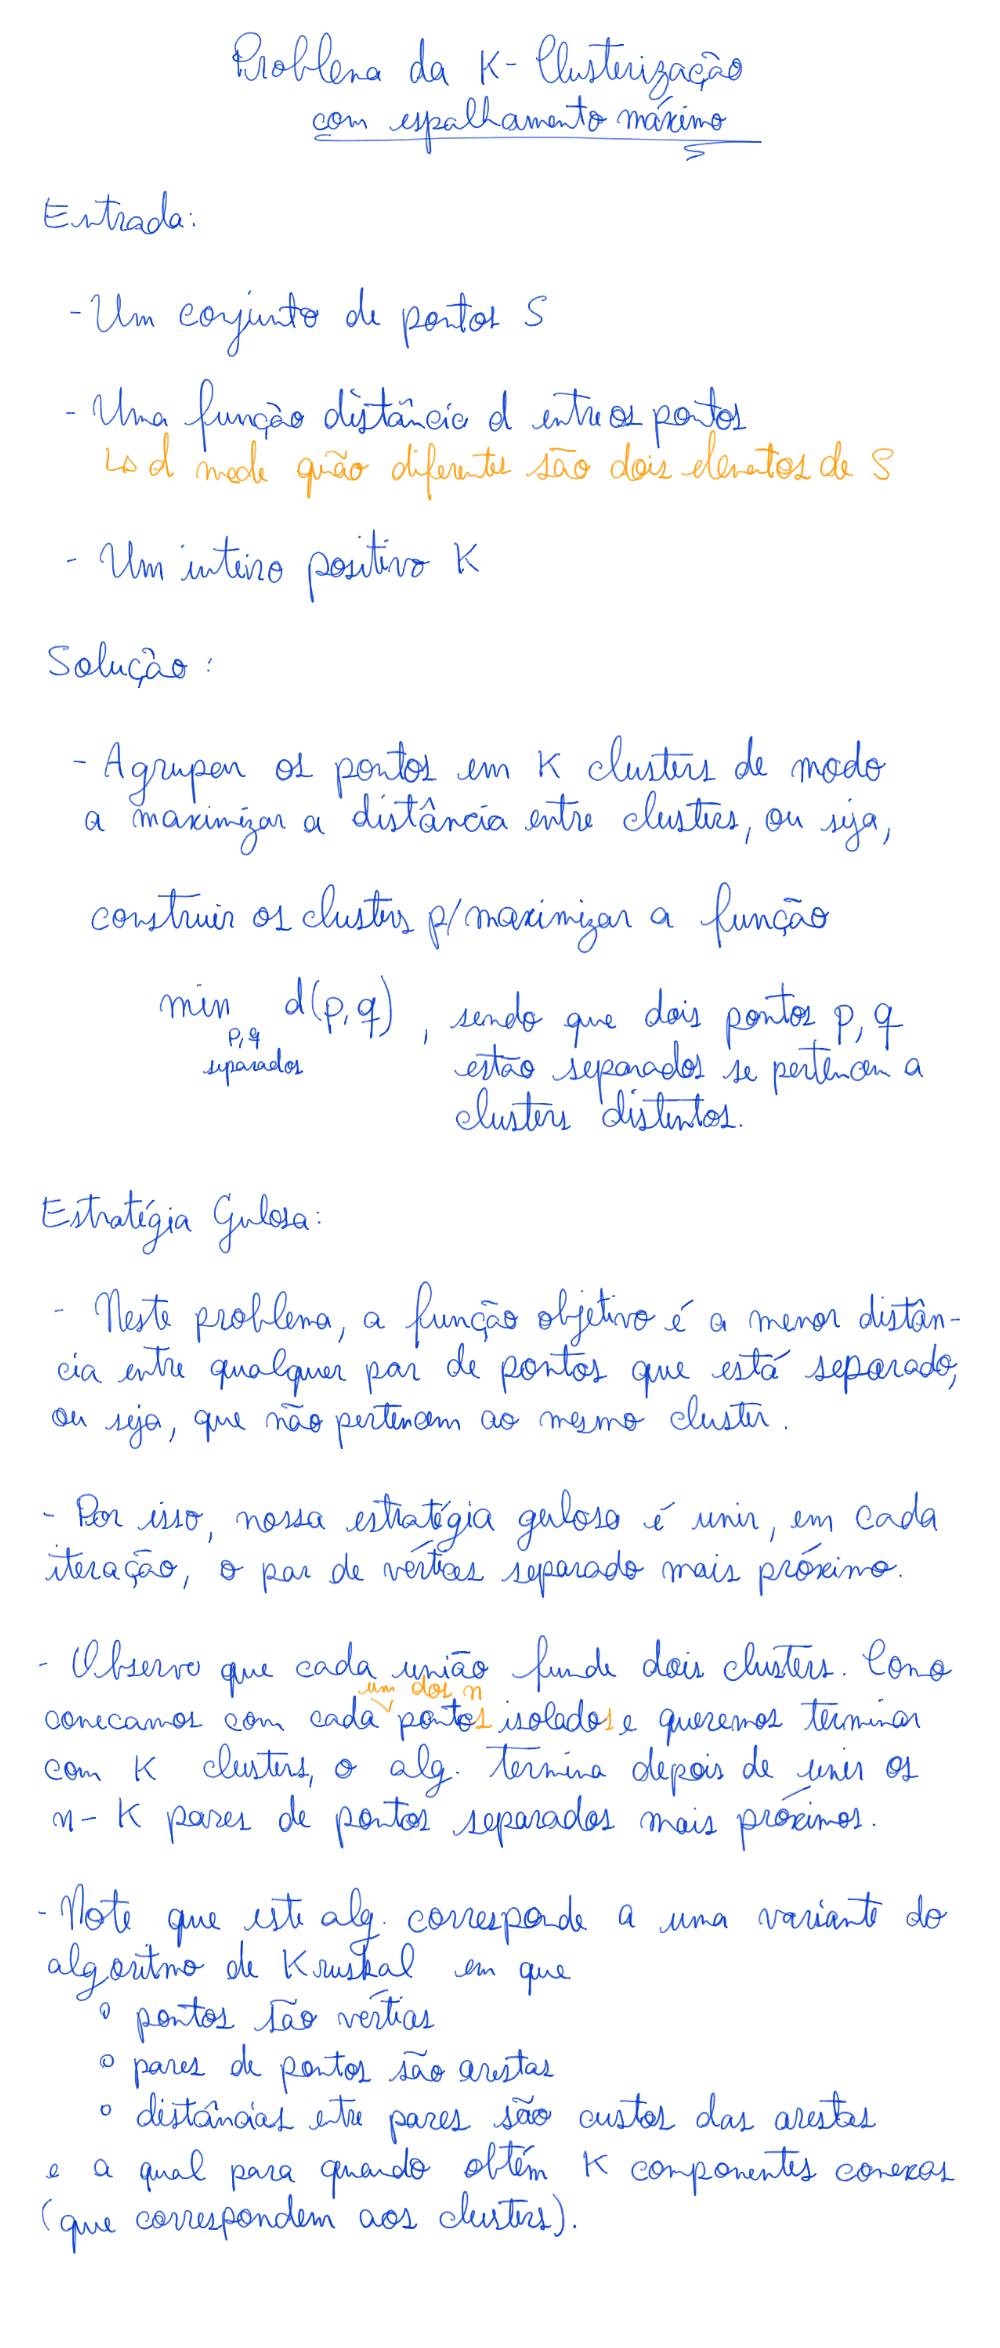 Problema da K-Clusterização
com espalhamento máximo
Entrada:
- Um conjunto de pontos S
- Uma função distância d entre os pontos
↳ d mede quão diferentes são dois elementos de S
- Um inteiro positivo K
Solução:
- Agrupar os pontos em K clusters de modo
a maximizar a distância entre clusters, ou seja,
construir os clusters p/ maximizar a função
min d(p,q), sendo que dois pontos p,q
p,q
separados estão separados se pertencem a
clusters distintos.
Estratégia Gulosa:
- Neste problema, a função objetivo é a menor distân-
cia entre qualquer par de pontos que está separado,
ou seja, que não pertencem ao mesmo cluster.
- Por isso, nossa estratégia gulosa é unir, em cada
iteração, o par de vértices separado mais próximo.
- Observe que cada união funde dois clusters. Como
um dos n
conecamos com cada pontos isolados e queremos terminar
com K clusters, o alg. termina depois de unir os
n-K pares de pontos separados mais próximos.
- Note que este alg. corresponde a uma variante do
algoritmo de Kruskal em que
° pontos são vértices
° pares de pontos são arestas
° distâncias entre pares são custos das arestas
e a qual para quando obtém K componentes conexas
(que correspondem aos clusters).